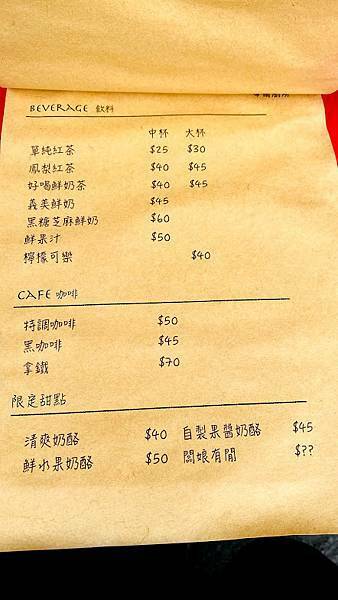 BEVERAGE 飲料
中杯 大杯
單純紅茶 $25 $30
鳳梨紅茶 $40 $45
好喝鮮奶茶 $40 $45
義美鮮奶 $45
黑糖芝麻鮮奶 $60
鮮果汁 $50
檸檬可樂 $40
CAFE 咖啡
特調咖啡 $50
黑咖啡 $45
拿鐵 $70
限定甜點
清爽奶酪 $40 自製果醬奶酪 $45
鮮水果奶酪 $50 闆娘有閒 $??